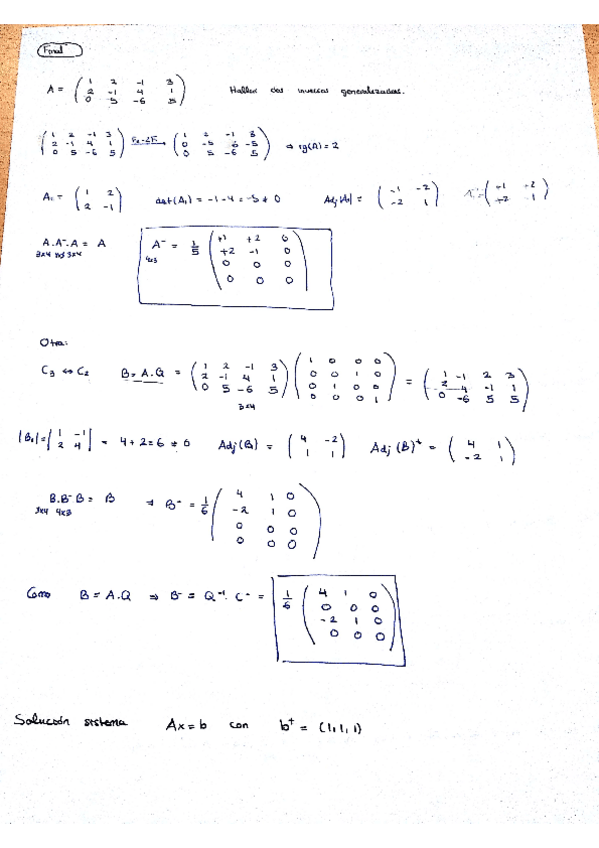 Final
A = ( 1 2 -1 3 ; 2 -1 4 1 ; 0 -5 -6 5 ) Hallar dos inversas generalizadas.
( 1 2 -1 3 ; 2 -1 4 1 ; 0 5 -6 5 ) F2-2F1 → ( 1 2 -1 3 ; 0 -5 6 -5 ; 0 5 -6 5 ) ⇒ rg(A) = 2
A₁ = ( 1 2 ; 2 -1 ) det(A₁) = -1-4 = -5 ≠ 0 = ( -1 -2 ; -2 1 ) ( -1 +2 ; +2 -1 )
A.A⁻.A = A A⁻ = 1/5 ( +1 +2 0 ; +2 -1 0 ; 0 0 0 ; 0 0 0 )
3x4 3x4 4x3
Otra:
C₃ ↔ C₂ B = A.Q = ( 1 2 -1 3 ; 2 -1 4 1 ; 0 5 -6 5 ) ( 1 0 0 0 ; 0 0 1 0 ; 0 1 0 0 ; 0 0 0 1 ) = ( 1 -1 2 3 ; 2 4 -1 1 ; 0 -6 5 5 )
3x4
|B₁| = | 1 -1 ; 2 4 | = 4+2 = 6 ≠ 0 Adj(B₁) = ( 4 -2 ; 1 1 ) Adj(B)ᵗ = ( 4 1 ; -2 1 )
B.B⁻B = B ⇒ B⁻ = 1/6 ( 4 1 0 ; -2 1 0 ; 0 0 0 ; 0 0 0 )
3x4 4x3
Como B = A.Q ⇒ B⁻ = Q⁻¹. C⁻ = 1/6 ( 4 1 0 ; 0 0 0 ; -2 1 0 ; 0 0 0 )
Solución sistema Ax = b con bᵗ = (1, 1, 1)